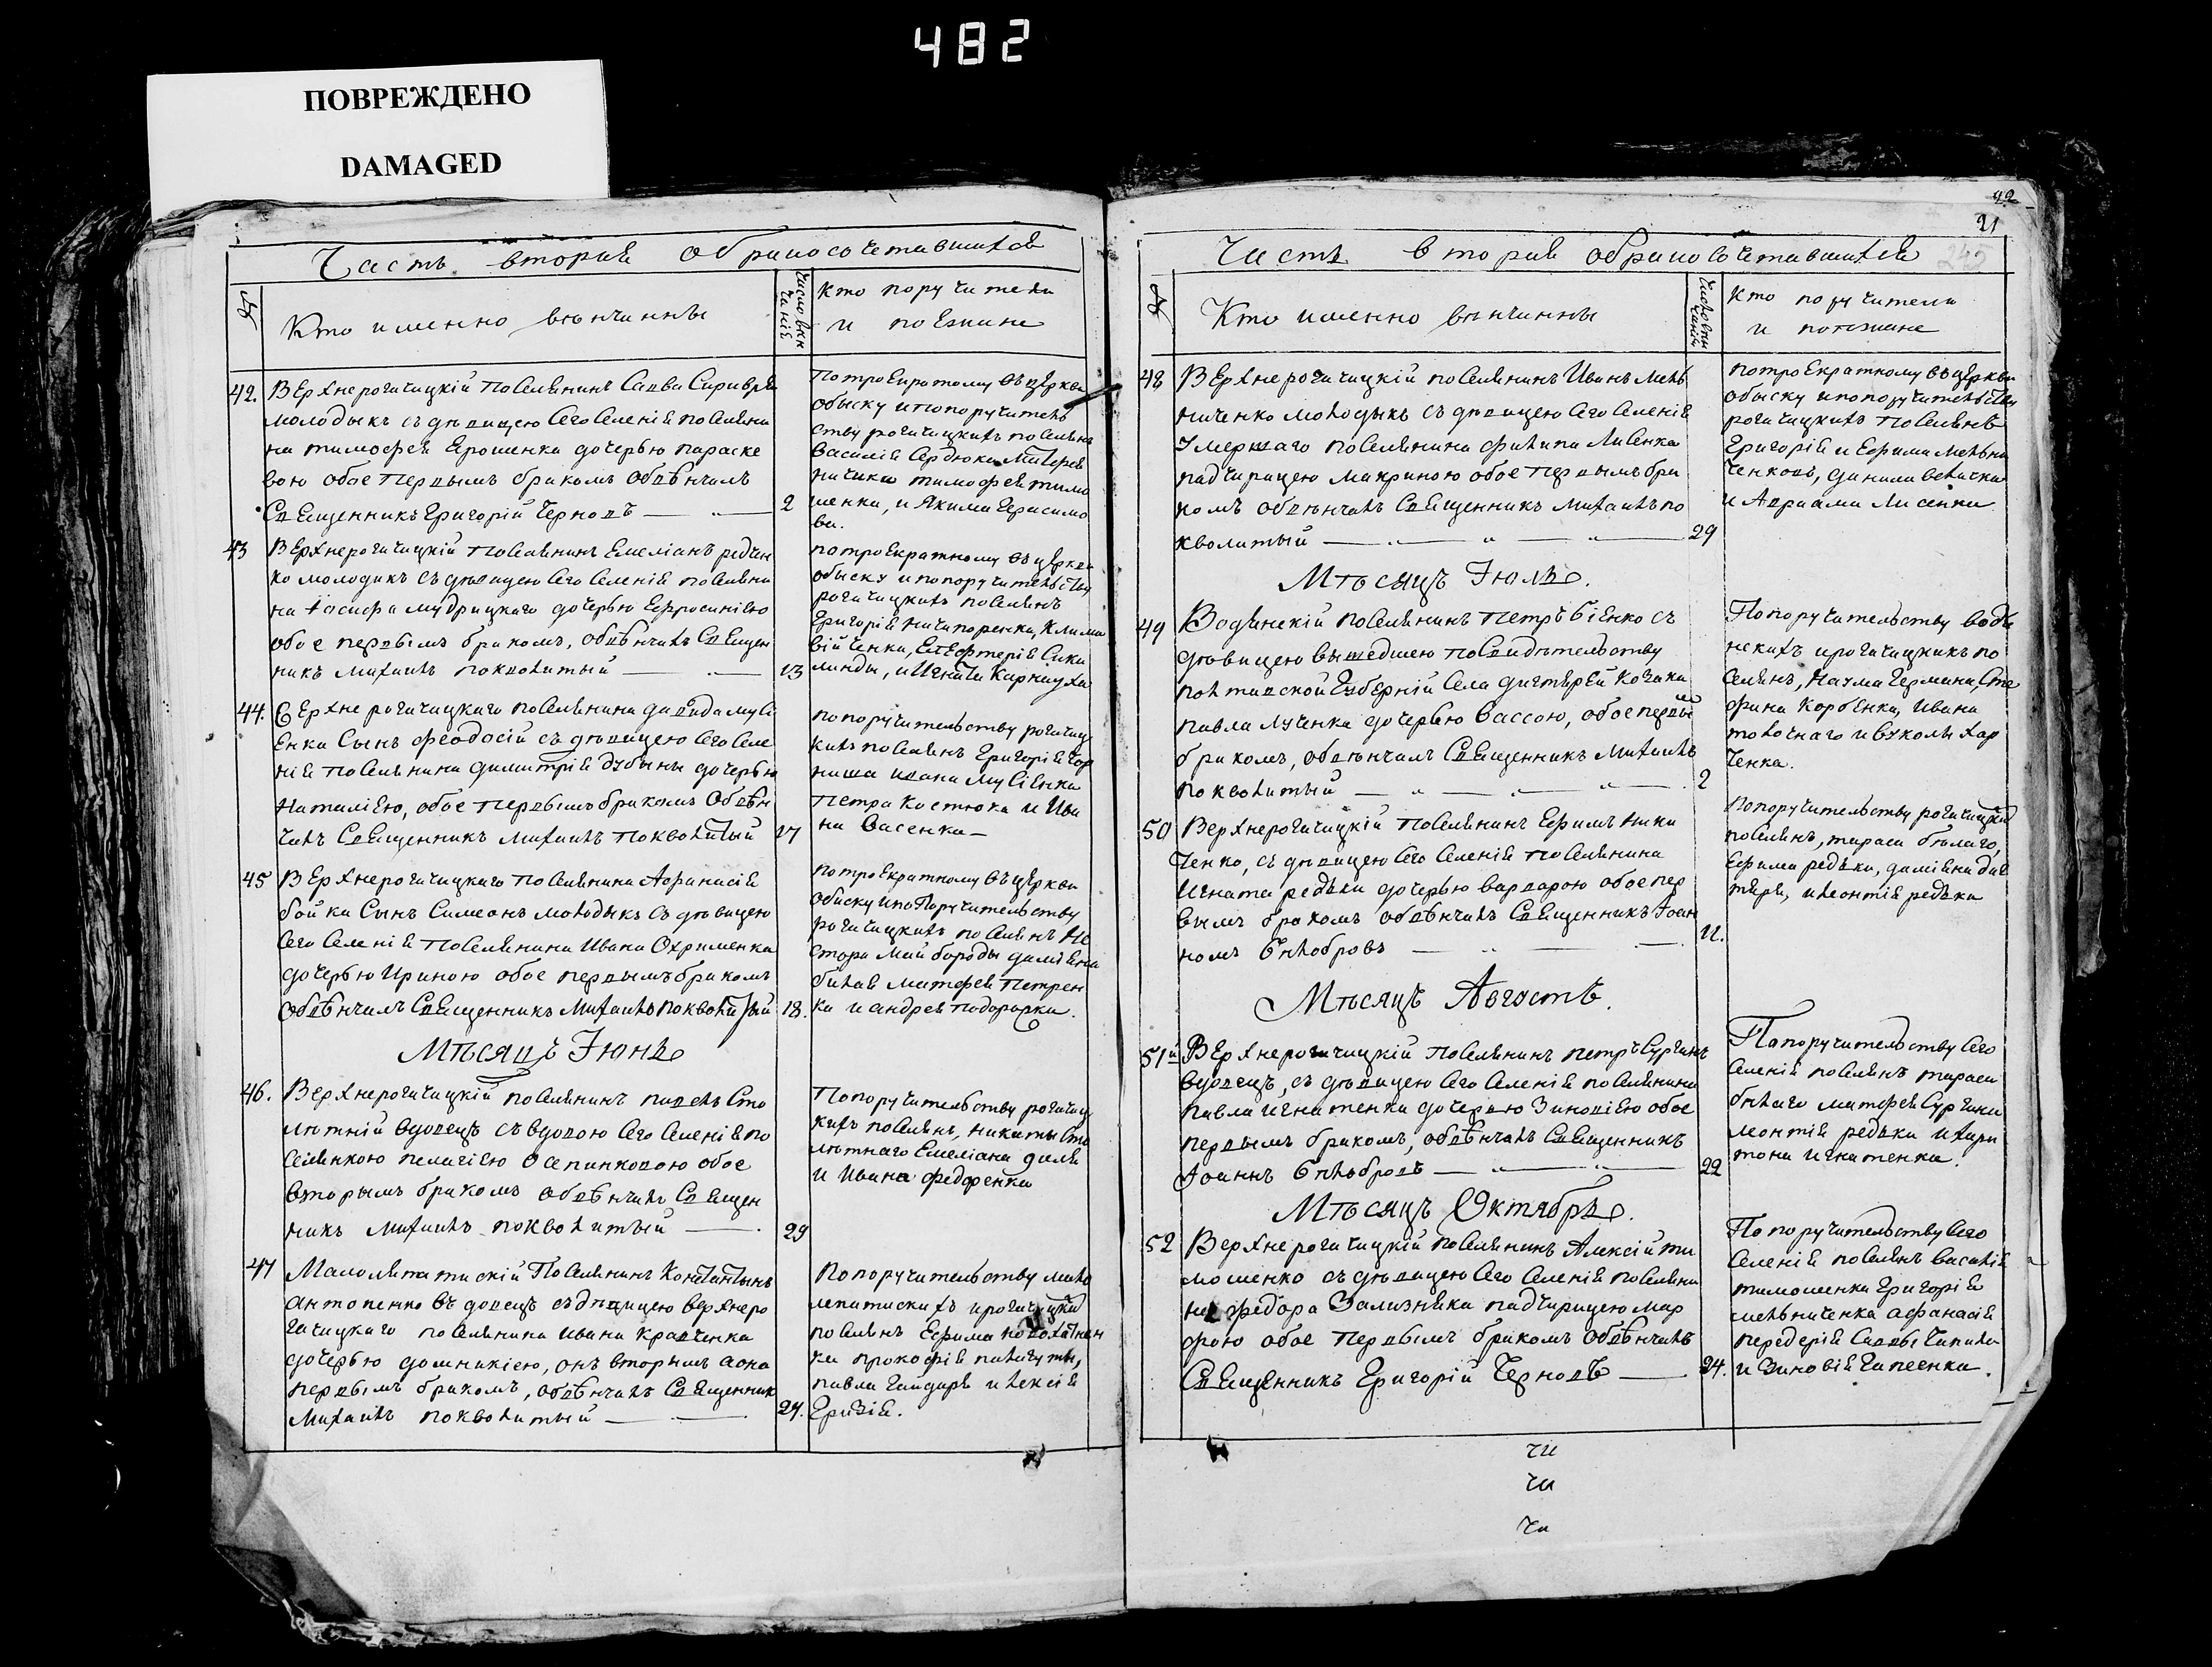 482
ПОВРЕЖДЕНО
DAMAGED
Часть вторая о бракосочетавшихся
Кто именно венчаны
Число вен
чаній
Кто поручители
и поезжане
42. Верхнерогачицкій поселянинъ Савва
молодыкъ съ девицею сего селенія поселяни
на тимофея Ярошенка дочерью параске
вою обое первымъ бракомъ обвенчалъ
Священникъ Григорій Черновъ
2
По троекратному въ церкви
обыску и по поручитель
ству рогачицкихъ поселянъ
Василія Сердюка Матфея
тимофея тимо
шенка, и Якима Герасимо
ва.
43 Верхнерогачицкій поселянинъ Емеліанъ редчен
ко молодикъ съ девицею сего селенія поселяни
на Іосифа мудрицкаго дочерью Ефросиніею
обое первымъ бракомъ, обвенчалъ Священ
никъ Михаилъ поквалитый
13
по троекратному въ церкви
обыску и по поручительству
рогачицкихъ поселянъ
Григорія Ничипоренка, Клима
війченка, Елефтерія Сика
линды, и Игната Карнауха
44. Верхнерогачицкаго поселянина давида мусі
енка Сынъ феодосій съ девицею сего селе
нія поселянина димитрія дубины дочерью
Наталіею, обое первымъ бракомъ Обвен
чалъ Священникъ михаилъ поквалитый
17
по поручительству рогачиц
кихъ поселянъ Григорія
ивана Мусіенка
петра Костюка и Ива
на Васенка
45 Верхнерогачицкаго поселянина Афанасія
бойка Сынъ Симеонъ молодыкъ съ девицею
сего селенія поселянина Ивана Охрименка
дочерью Ириною обое первымъ бракомъ
обвенчалъ Священникъ Михаилъ поквалитый
18.
по троекратному въ церкви
обиску и по поручительству
рогачицкихъ поселянъ Не
стора Майбороды даміяна
белая матфея Петрен
ка и андрея
Месяцъ Іюнь
46. Верхнерогачицкій поселянинъ павелъ Сто
летній вдовецъ съ вдовою сего селенія по
селянкою пелагіею Осепинковою обое
вторымъ бракомъ обвенчалъ Священ
никъ михаилъ поквалитый
23
По поручительству рогачиц
кихъ поселянъ, никиты Сто
летнаго Емеліана
и Ивана федоренка
47 Малолепатискій Поселянинъ Константинъ
антоненко вдовецъ съ девицею верхнеро
гачицкаго поселянина ивана кравченка
дочерью домникіею, онъ вторымъ а она
первымъ бракомъ, обвенчалъ Священник
Михаилъ поквалитый
24.
По поручительству мало
лепатискихъ и рогачицких
поселянъ Ефима
ки прокофія палагуты,
павла Гайдаря и Алексія
Еризія.
42
21
245
Часть вторая о бракосочетавшихся
Кто именно венчаны
Число вен
чаній
Кто поручители
и поезжане
48 Верхнерогачицкій поселянинъ Иванъ Мель
ниченко молодыкъ съ девицею сего селенія
умершаго поселянина филипа Лисенка
падчирицею макриною обое первымъ бра
комъ обвенчалъ Священникъ Михаилъ по
кволитый
29
по троекратному въ церкви
обыску и по поручительству
рогачицкихъ поселянъ
Григорія и Ефима мельни
ченковъ, данила величка
и Авраама Лисенка
Месяцъ Іюль.
49 Водянскій поселянинъ Петръ Біенко съ
девицею вышедшею по свидетельству
полтавской Губерніи Села дигтярей козака
павла лученка дочерью Вассою, обое первый
бракомъ, обвенчалъ Священникъ Михаилъ
поквалитый
2
По поручительству водя
нскихъ и рогачицкихъ по
селянъ, Наума Германа, Сте
фана Коробенка, Ивана
толочнаго и Вукола Хар
ченка.
50 Верхнерогачицкій поселянинъ Ефимъ Ники
ченко, съ девицею сего селенія поселянина
Игната редьки дочерью варварою обое пер
вымъ бракомъ обвенчалъ Священникъ Іоан
номъ Белобровъ
11.
По поручительству рогачицких
поселянъ, тараса белаго,
Ефима редьки, даміяна
и леонтія редьки
Месяцъ Августъ.
51й Верхнерогачицкій поселянинъ петръ Сургинъ
вдовецъ, съ девицею сего селенія поселянина
павла игнатенка дочерью Зиновіею обое
первымъ бракомъ, обвенчалъ Священникъ
Іоаннъ Белобровъ
22
По поручительству сего
селенія поселянъ тараса
белаго матфея Сургина
леонтія редьки и хари
тона игнатенка.
Месяцъ Октябрь.
52 Верхнерогачицкій поселянинъ Алексій ти
мошенко съ девицею сего селенія поселяни
на федора Зализняка падчирицею мар
фою обое первымъ бракомъ обвенчалъ
Священникъ Григорій Черновъ
24.
По поручительству сего
селенія поселянъ василія
тимошенка Григорія
мельниченка афанасія
передерія Саввы
и Зиновія Гапеенка.